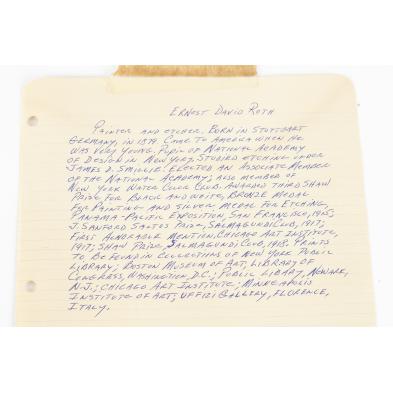 ERNEST DAVID ROTH
PAINTER AND ETCHER. BORN IN STUTTGART
GERMANY, IN 1879. CAME TO AMERICA WHEN HE
WAS VERY YOUNG. PUPIL OF NATIONAL ACADEMY
OF DESIGN IN NEW YORK, STUDIED ETCHING UNDER
JAMES D. SMILLIE. ELECTED AN ASSOCIATE MEMBER
OF THE NATIONAL ACADEMY; ALSO MEMBER OF
NEW YORK WATER COLOR CLUB. AWARDED THIRD SHAW
PRIZE FOR BLACK AND WHITE, BRONZE MEDAL
FOR PAINTING AND SILVER MEDAL FOR ETCHING,
PANAMA-PACIFIC EXPOSITION, SAN FRANCISCO, 1915;
J. SANFORD SALTUS PRIZE, SALMAGUNDI CLUB, 1917;
FIRST HONORABLE MENTION, CHICAGO ART INSTITUTE,
1917; SHAW PRIZE, SALMAGUNDI CLUB, 1918. PRINTS
TO BE FOUND IN COLLECTIONS OF NEW YORK PUBLIC
LIBRARY; BOSTON MUSEUM OF ART, LIBRARY OF
CONGRESS, WASHINGTON, D.C.; PUBLIC LIBRARY, NEWARK,
N.J.; CHICAGO ART INSTITUTE; MINNEAPOLIS
INSTITUTE OF ART; UFFIZI GALLERY, FLORENCE,
ITALY.